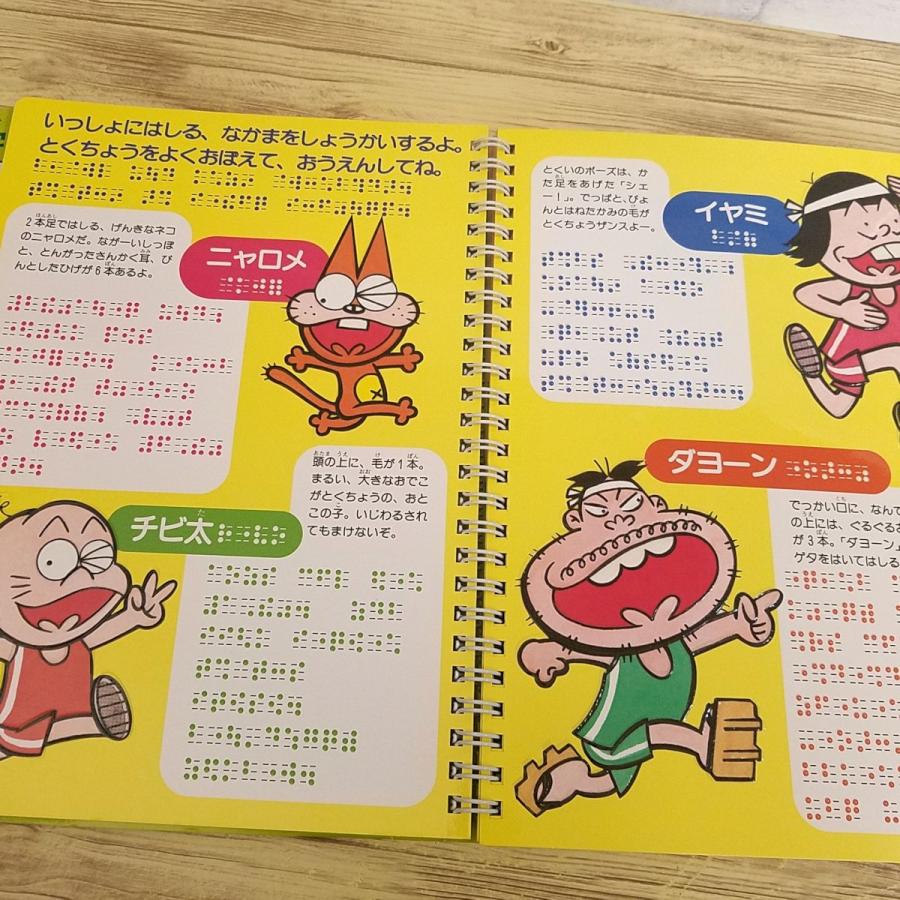 いっしょにはしる、なかまをしょうかいするよ。
とくちょうをよくおぼえて、おうえんしてね。
2本足ではしる、げんきなネコ
のニャロメだ。ながーいしっぽ
と、とんがったさんかく耳、ぴ
んとしたひげが6本あるよ。
ニャロメ
頭の上に、毛が1本。
まるい、大きなおでこ
がとくちょうの、おと
この子。いじわるされ
てもまけないぞ。
チビ太
とくいのポーズは、か
た足をあげた「シェ
ー！」。でっぱと、ぴょ
んとはねたかみの毛が
とくちょうザンスよー。
イヤミ
ダヨーン
でっかい口に、なんて
の上には、ぐるぐる
が3本。「ダヨーン」
ゲタをはいてはしる